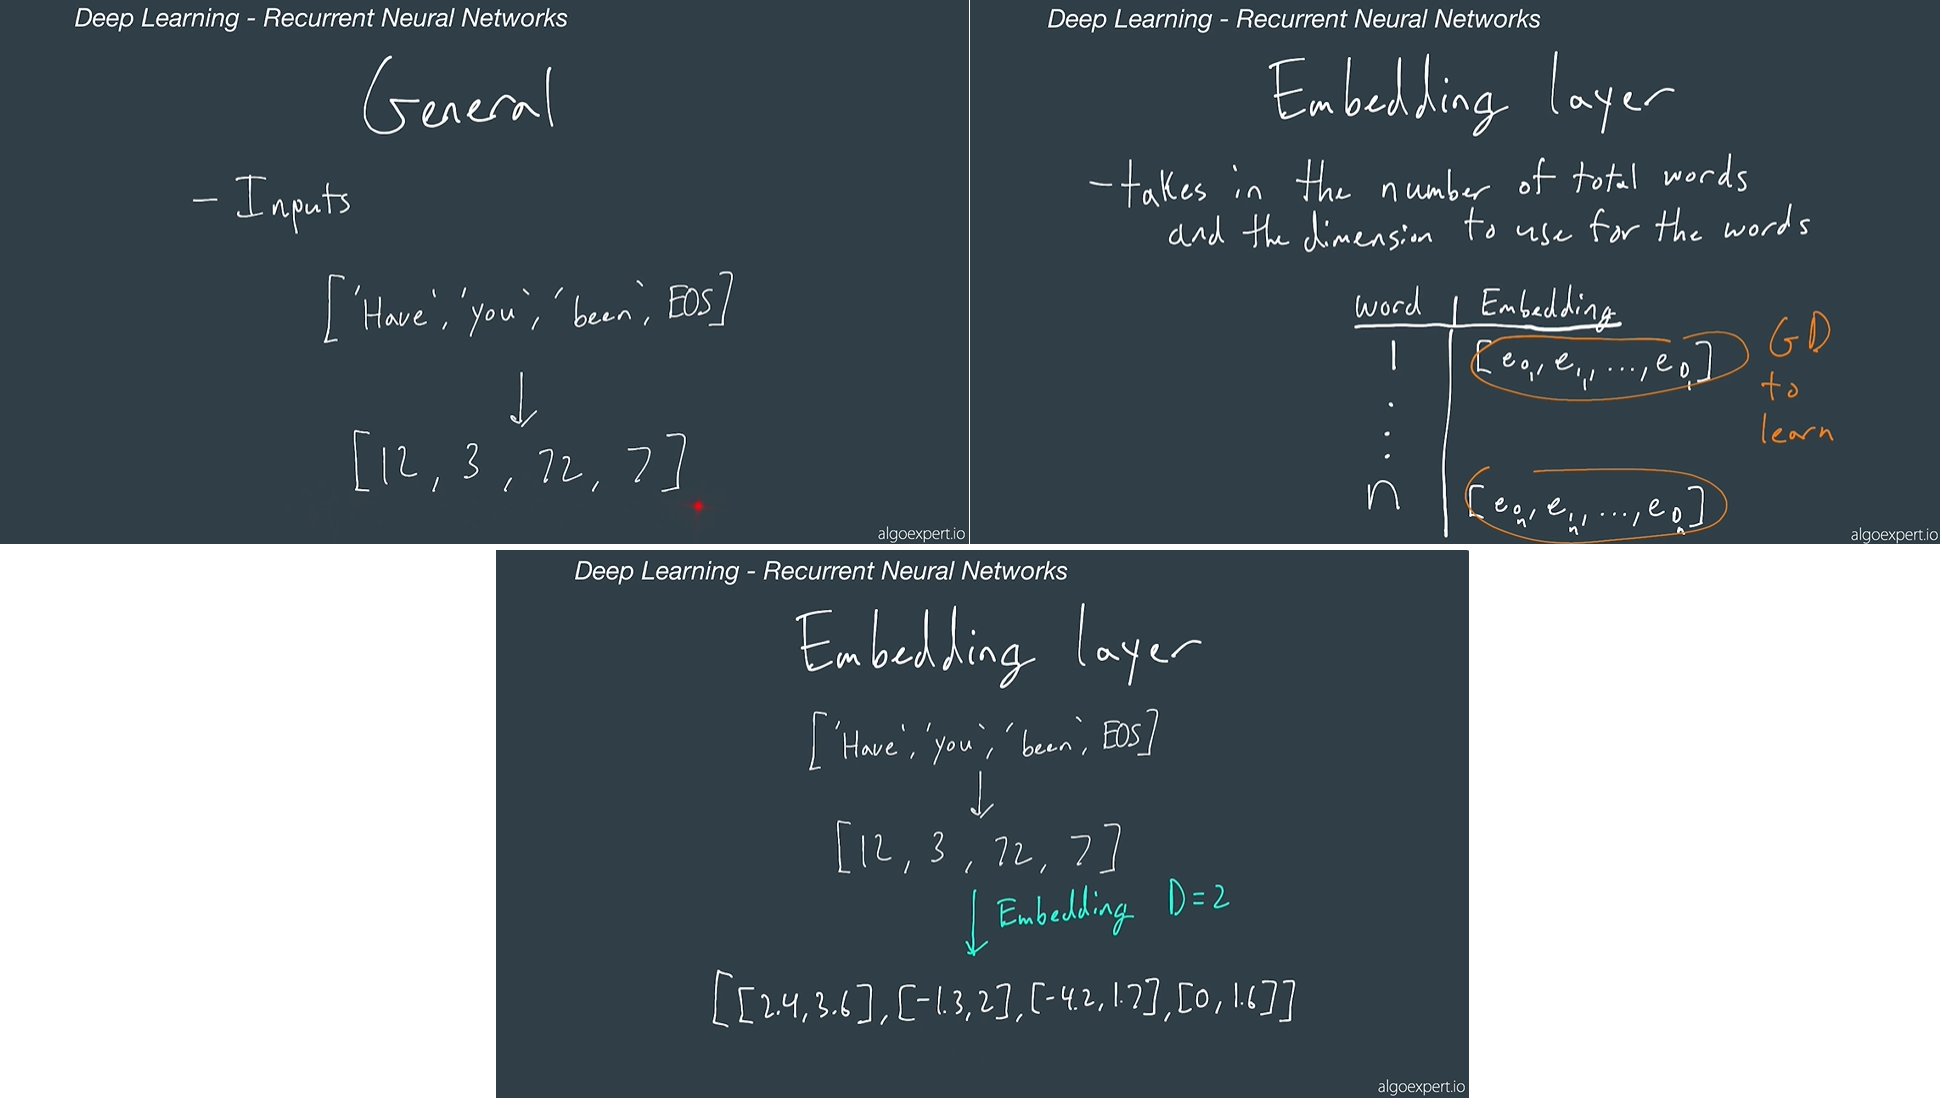 Deep Learning - Recurrent Neural Networks
General
- Inputs
['Have', 'you', 'been', EOS]
[12, 3, 72, 7]
algoexpert.io
Deep Learning - Recurrent Neural Networks
Embedding layer
- takes in the number of total words
and the dimension to use for the words
word | Embedding
1 [e0,1, e1,1, ..., eD,1]
GD
to
learn
n [e0,n, e1,n, ..., eD,n]
algoexpert.io
Deep Learning - Recurrent Neural Networks
Embedding layer
['Have', 'you', 'been', EOS]
[12, 3, 72, 7]
Embedding D=2
[[2.4, 3.6], [-1.3, 2], [-4.2, 1.7], [0, 1.6]]
algoexpert.io